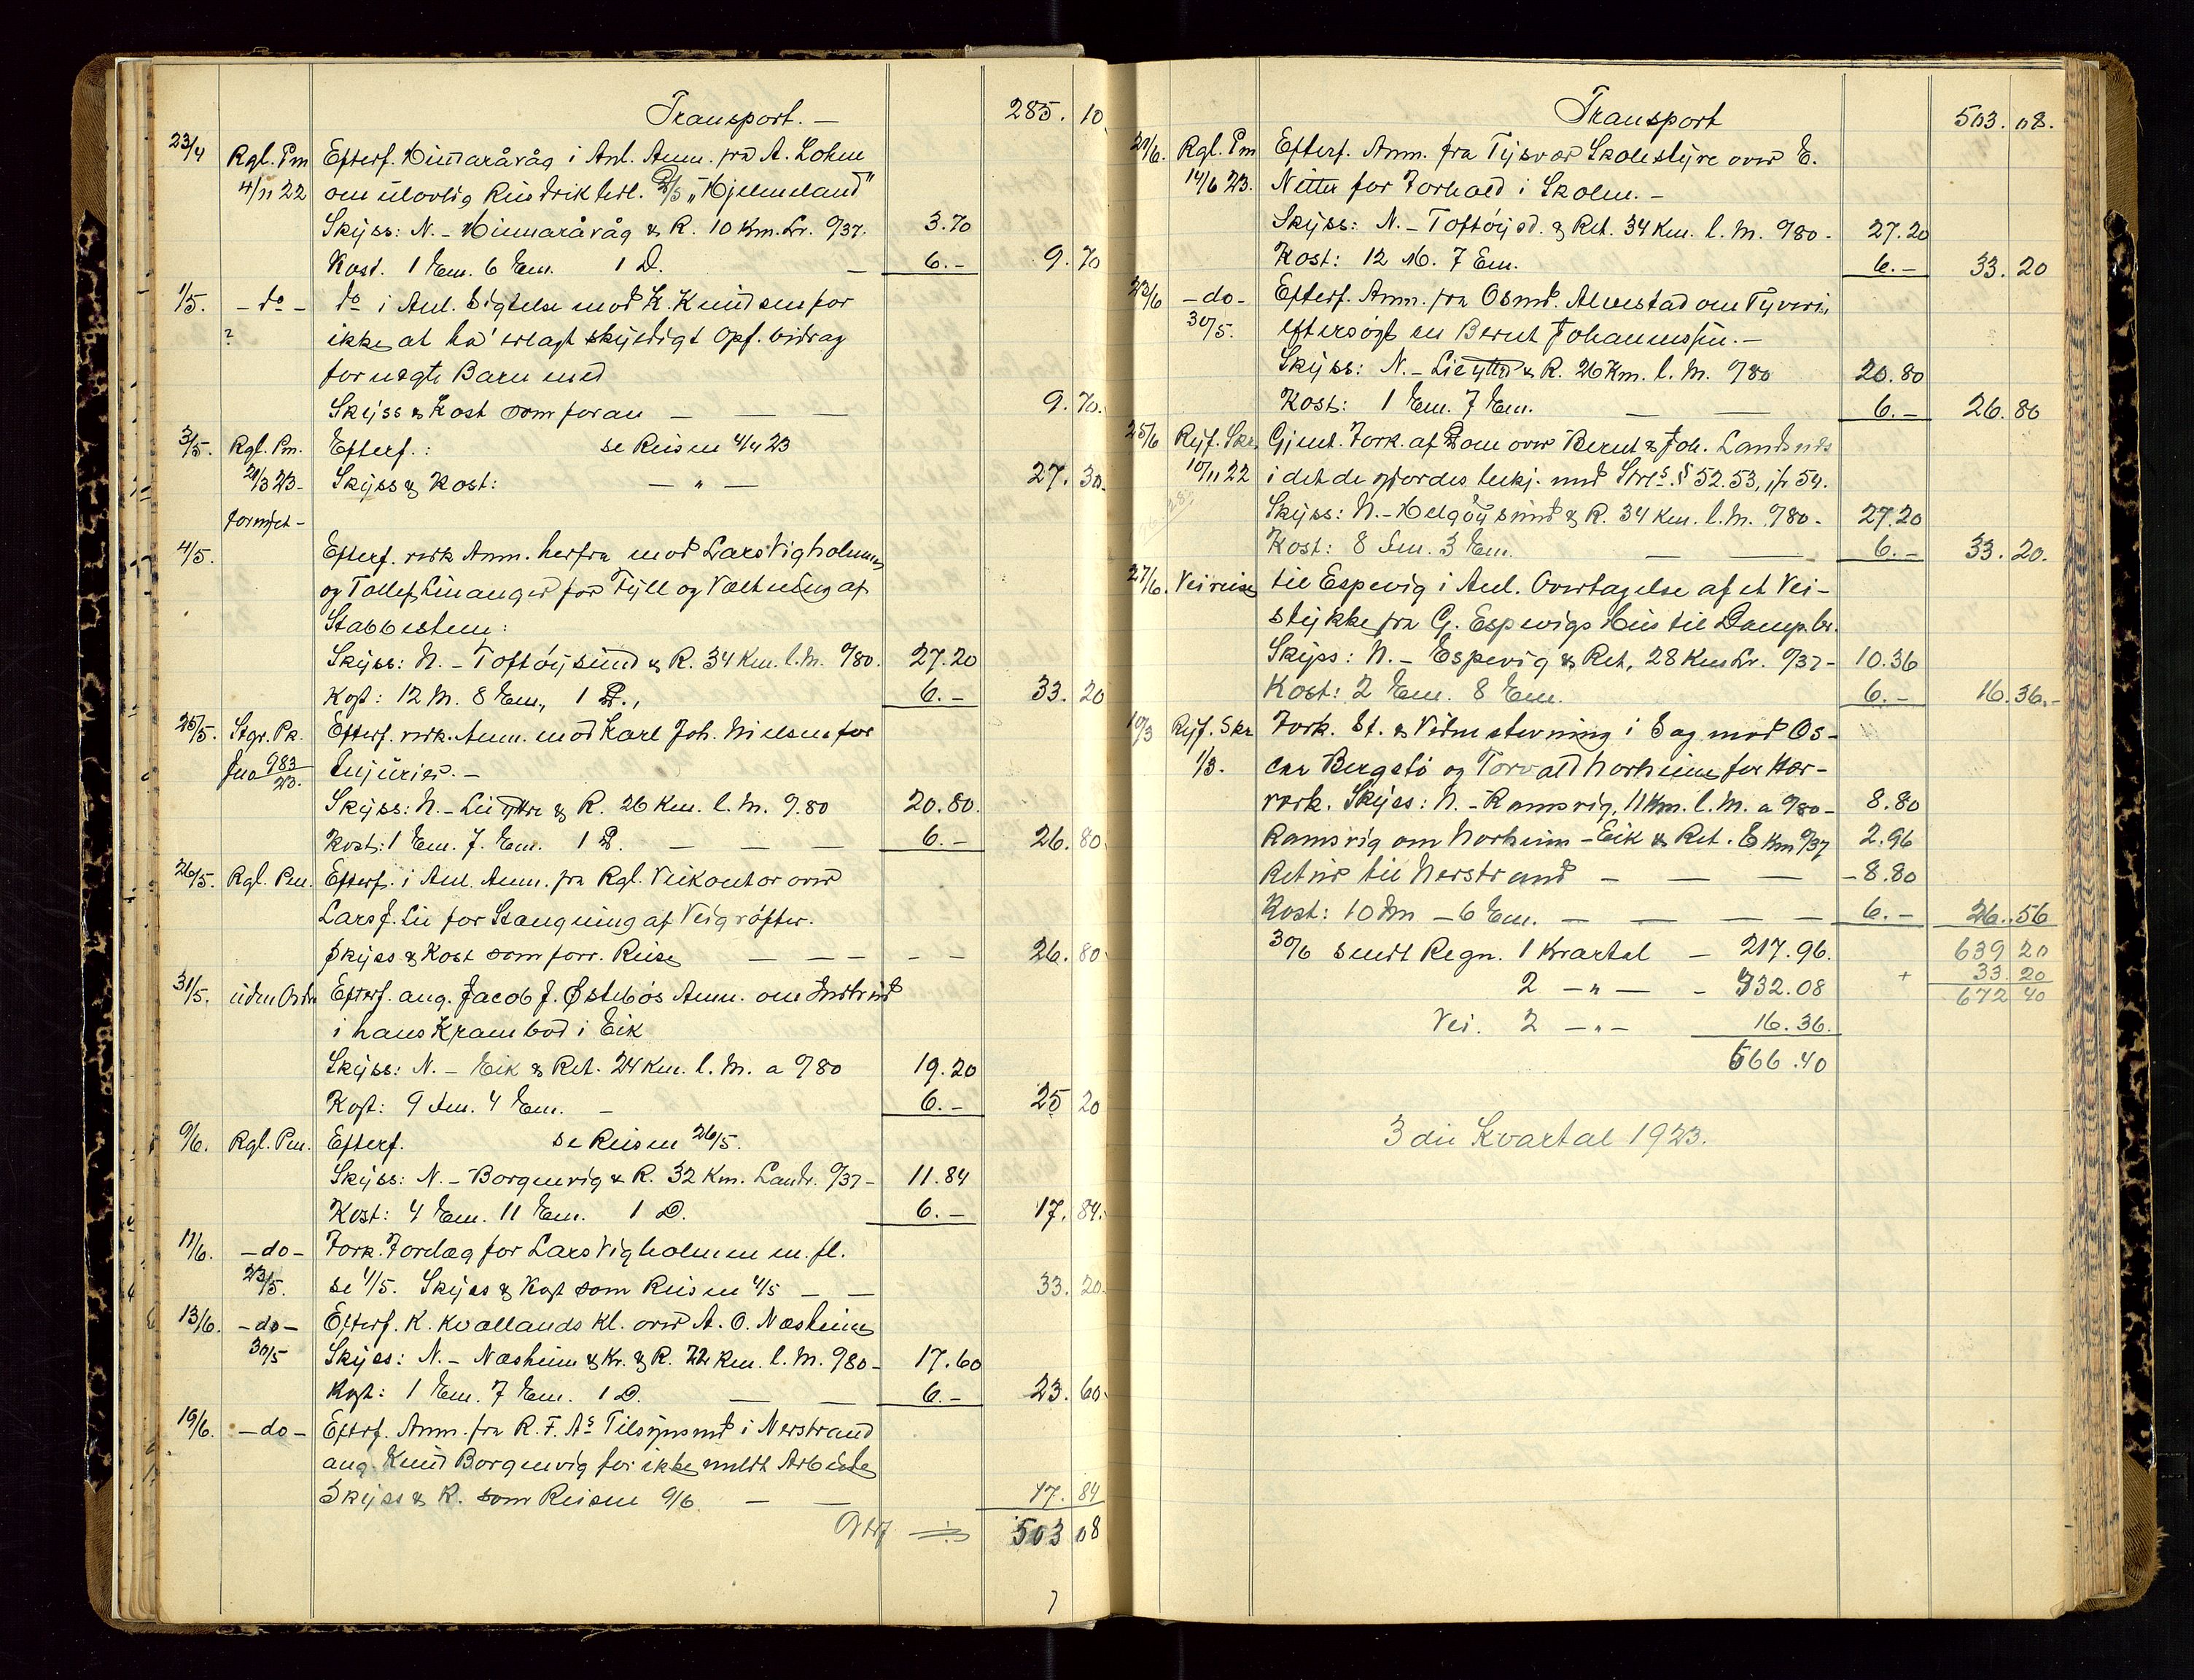 Transport. — 285. 10
23/4 Rgl. Pm Efterf. Hinnaråvåg i Anl. Anm. fra A. Lohne
4/11 22 om ulovlig Rusdrik ##### D/S „Hjelmeland"
Skyss: N. - Hinnaråvåg & R. 10 Km. Lv. 0/37. 3.70
Kost. 1 Em. 6 Em. 1 D. — 6.— 9. 70
1/5. — do — do i Anl. Sigtelse mod K. Knudsen for
? ikke at ha' erlagt skyldigt Opf. bidrag
for uægte Barn med
Skyss & Kost som foran — — — 9. 70.
3/5. Rgl. Pm. Efterf.: se Reisen 4/4 23
21/3 23- Skyss & Kost: — " — 27. 30.
fornyet-
4/5. Efterf. verk Anm. herfra mod Lars Vigholmen
og Tollef Linanger for Fyll og Væltning af
Stabbestene:
Skyss: N. - Toftøysund & R. 34 Km. l. M. 0/80. 27.20
Kost: 12 M. 8 Em., 1 D., 6.— 33. 20
25/5. Stgr. Pk. Efterf. verk. Anm. mod Karl Joh. Nielsen for
Jno 983/23. Injurier. —
Skyss: N. - Lieyttre & R. 26 Km. l. M. 0.80 20.80.
Kost: 1 Em. 7. Em. 1 D. — — — 6.— 26. 80
26/5. Rgl. Pm. Efterf. i Anl. Anm. fra Rgl. Veikontor over
Lars J. Lie for Stangning af Veigrøfter.
Skyss & Kost som forr. Reise — — — — — 26. 80
31/5. uden Ordre Efterf. ang. Jacob J. Østebøs Anm. om Indbrud
i hans Krambod i Eik
Skyss: N. - Eik & Ret. 24 Km. l. M. a 0/80 19.20
Kost: 9 Fm. 4 Em. — 6.— 25 20
9/6. Rgl. Pm. Efterf. se Reisen 26/5.
Skyss: N. - Borgenvig & R. 32 Km. Landv. 0/37- 11.84
Kost: 4 Em. 11 Em. 1 D. 6.— 17. 84.
11/6. — do — Fork. Forelæg for Lars Vigholmen m. fl.
23/5. se 4/5. Skyss & Kost som Reisen 4/5 — — 33. 20.
13/6. — do — Efterf. K. Kvallands Kl. over A. O. Næsheim
30/5 Skyss: N. - Næsheim & Kr. & R. 22 Km. l. M. 0/80 - 17.60
Kost: 1 Em. 7 Em. 1 D. — — 6.— 23. 60.
19/6. — do — Efterf. Anm. fra R. F. As Tilsynsmd i Nerstrand
ang. Knud Borgenvig for ikke meldt Arbeide
Skyss & K. som Reisen 9/6. — — 17. 84
503 08
Transport 503. 08.
21/6. Rgl. Pm Efterf. Anm. fra Tysvær Skolestyre over E.
14/6 23. Nitter for Forhold i Skolen. —
Skyss: N. - Toftøysd. & Ret. 34 Km. l. M. 0/80 - 27.20
Kost: 12 M. 7 Em. 6.— 33. 20
23/6 — do — Efterf. Anm. fra Osmd. Alvestad om Tyveri,
30/5. eftersøgt en Bernt Johannessen. —
Skyss: N. - Lieyttre & R. 26 Km. l. M. 0/80 20.80
Kost: 1 Em. 7 Em. — — 6.— 26. 80
25/6 Ryf. Skr. Gjent. Fork. af Dom over Bernt & Joh. Landsnes
10/11 22 i det de gjordes bekj. med Strfs. § 52. 53, jfr 54.
Skyss: N. - Helgøysund & R. 34 Km. l. M. 0/80 - 27.20
Kost: 8 Fm. 3 Em. — — 6.— 33. 20.
27/6. Veireise til Espevig i Anl. Overtagelse af et Vei-
stykke fra G. Espevigs Hus til Dampbr.
Skyss: N. - Espevig & Ret, 28 Km Lv. 0/37 - 10.36
Kost: 2 Em. 8 Em. 6.— 16.36.-
10/3 Ryf. Skr Fork. St. & Vidnestevning i Sag mod Os-
1/3. car Bergstø og Torvald Norheim for Hær-
verk. Skyss: N. - Ramsvig, 11 Km. l. M. a 0/80 - 8.80
Ramsvig om Norheim - Eik & Ret. 8 Km 0/37 2.96
Retur til Nerstrand — — — - 8.80
Kost: 10 Fm - 6 Em. — — — — 6.— 26.56
30/6 sendt Regn. 1 Kvartal — 217.96. 639 20
2 — " — - 432.08 + 33. 20
Vei. 2 — " — 16.36. 672 40
666.40
3die Kvartal 1923.